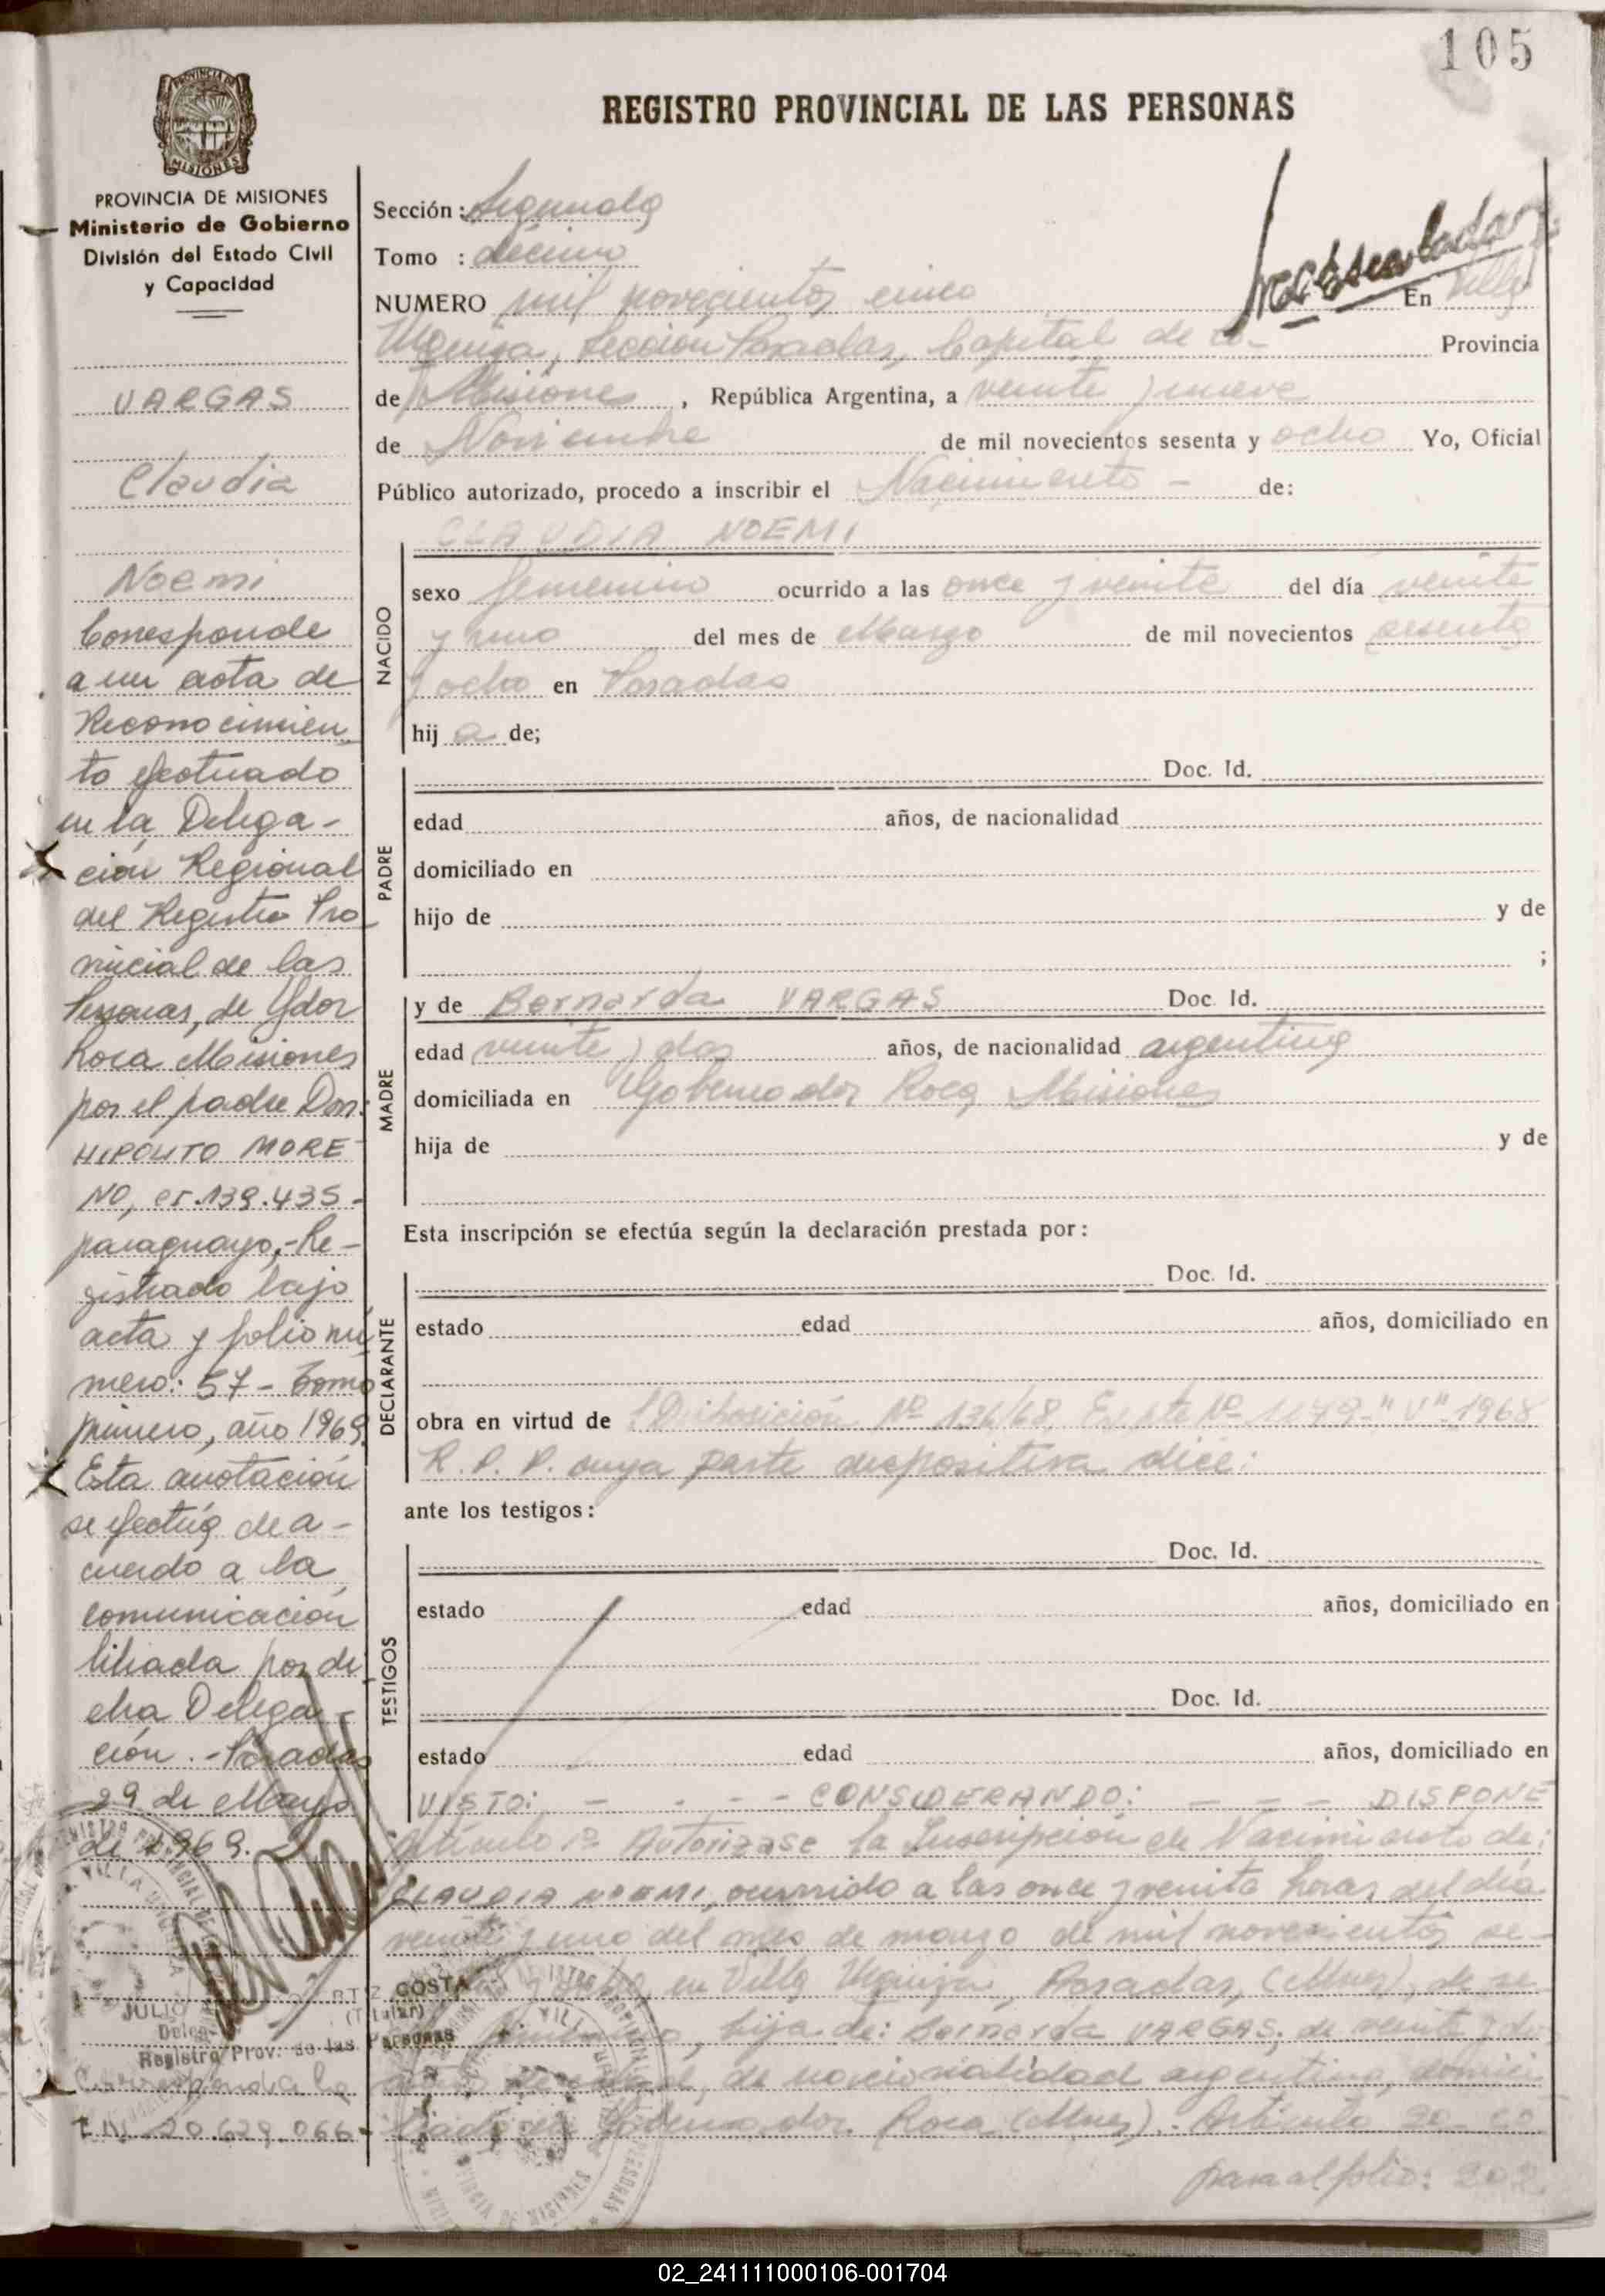 105
REGISTRO PROVINCIAL DE LAS PERSONAS
PROVINCIA DE
MISIONES
PROVINCIA DE MISIONES
Ministerio de Gobierno
División del Estado Civil
y Capacidad
VARGAS
Claudia
Noemi
Corresponde
a un acta de
Reconocimien
to efectuado
en la Delega-
ción Regional
del Registro Pro
vincial de las
Personas, de Gdor
Roca Misiones
por el padre Don:
HIPOLITO MORE
NO, 139.435-
paraguayo,-Re-
gistrado bajo
acta y folio nú
mero: 57- Tomo
primero, año 1969
Esta anotación
se efectúa de a-
cuerdo a la
comunicación
librada por di
cha Delega-
ción.-Posadas
29 de Mayo
de 1969.
JULIO ORTIZ COSTA
(Titular)
Registro Prov. de las Personas
Corresponde la
20.629.066-
Sección: Segunda
Tomo : décimo
NUMERO mil novecientos cinco En Villa
Urquiza, Sección Posadas, Capital de la- Provincia
de Misiones, República Argentina, a veinte y nueve
de Noviembre de mil novecientos sesenta y ocho Yo, Oficial
Público autorizado, procedo a inscribir el Nacimiento - de:
CLAUDIA NOEMI
NACIDO
sexo femenino ocurrido a las once y veinte del día veinte
y uno del mes de Marzo de mil novecientos sesenta
y ocho en Posadas
hij a de;
PADRE
Doc. Id.
edad años, de nacionalidad
domiciliado en
hijo de y de
;
MADRE
y de Bernarda VARGAS Doc. Id.
edad veinte y dos años, de nacionalidad argentina
domiciliada en Gobernador Roca, Misiones
hija de y de
Esta inscripción se efectúa según la declaración prestada por:
DECLARANTE
Doc. Id.
estado edad años, domiciliado en
obra en virtud de Disposición Nº 136/68, Expte Nº 1179-"V"-1968
R. P. P. cuya parte dispositiva dice:
ante los testigos:
TESTIGOS
Doc. Id.
estado edad años, domiciliado en
Doc. Id.
estado edad años, domiciliado en
VISTO: - - - - CONSIDERANDO: - - - DISPONE
Artículo 1º Autorizase la Inscripción de Nacimiento de:
CLAUDIA NOEMI, ocurrido a las once y veinte horas del día
veinte y uno del mes de marzo de mil novecientos se-
en Villa Urquiza, Posadas, (Mnes), de se
hija de: Bernarda VARGAS, de veinte y dos
años de edad, de nacionalidad argentina, domici
liada en Gobernador Roca (Mnes). Artículo
pasa al folio: 202
02_241111000106-001704